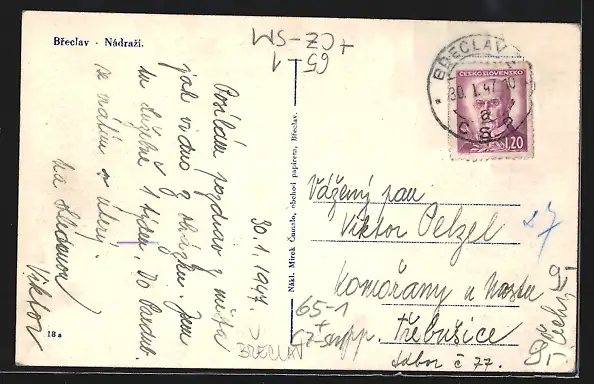 Břeclav - Nádraží.
+CZ-SM
65-1
30.1.1947.
Posílám pozdrav z místa
jak vidno z obrázku. Jsem
tu služebně 1 týden. Do Pardub.
se vrátím v úterý.
Na shledanou
Viktor
BŘECLAV
18 a
Nákl. Mirek Čumelo, obchod papírem, Břeclav.
BŘECLAV
30. I. 47. 10
a
ČSR
ČESKOSLOVENSKO
1.20
Vážený pan
Viktor Pelzel
27
Komořany u Mostu
65-1
+
Třebušice
Čechy
77.